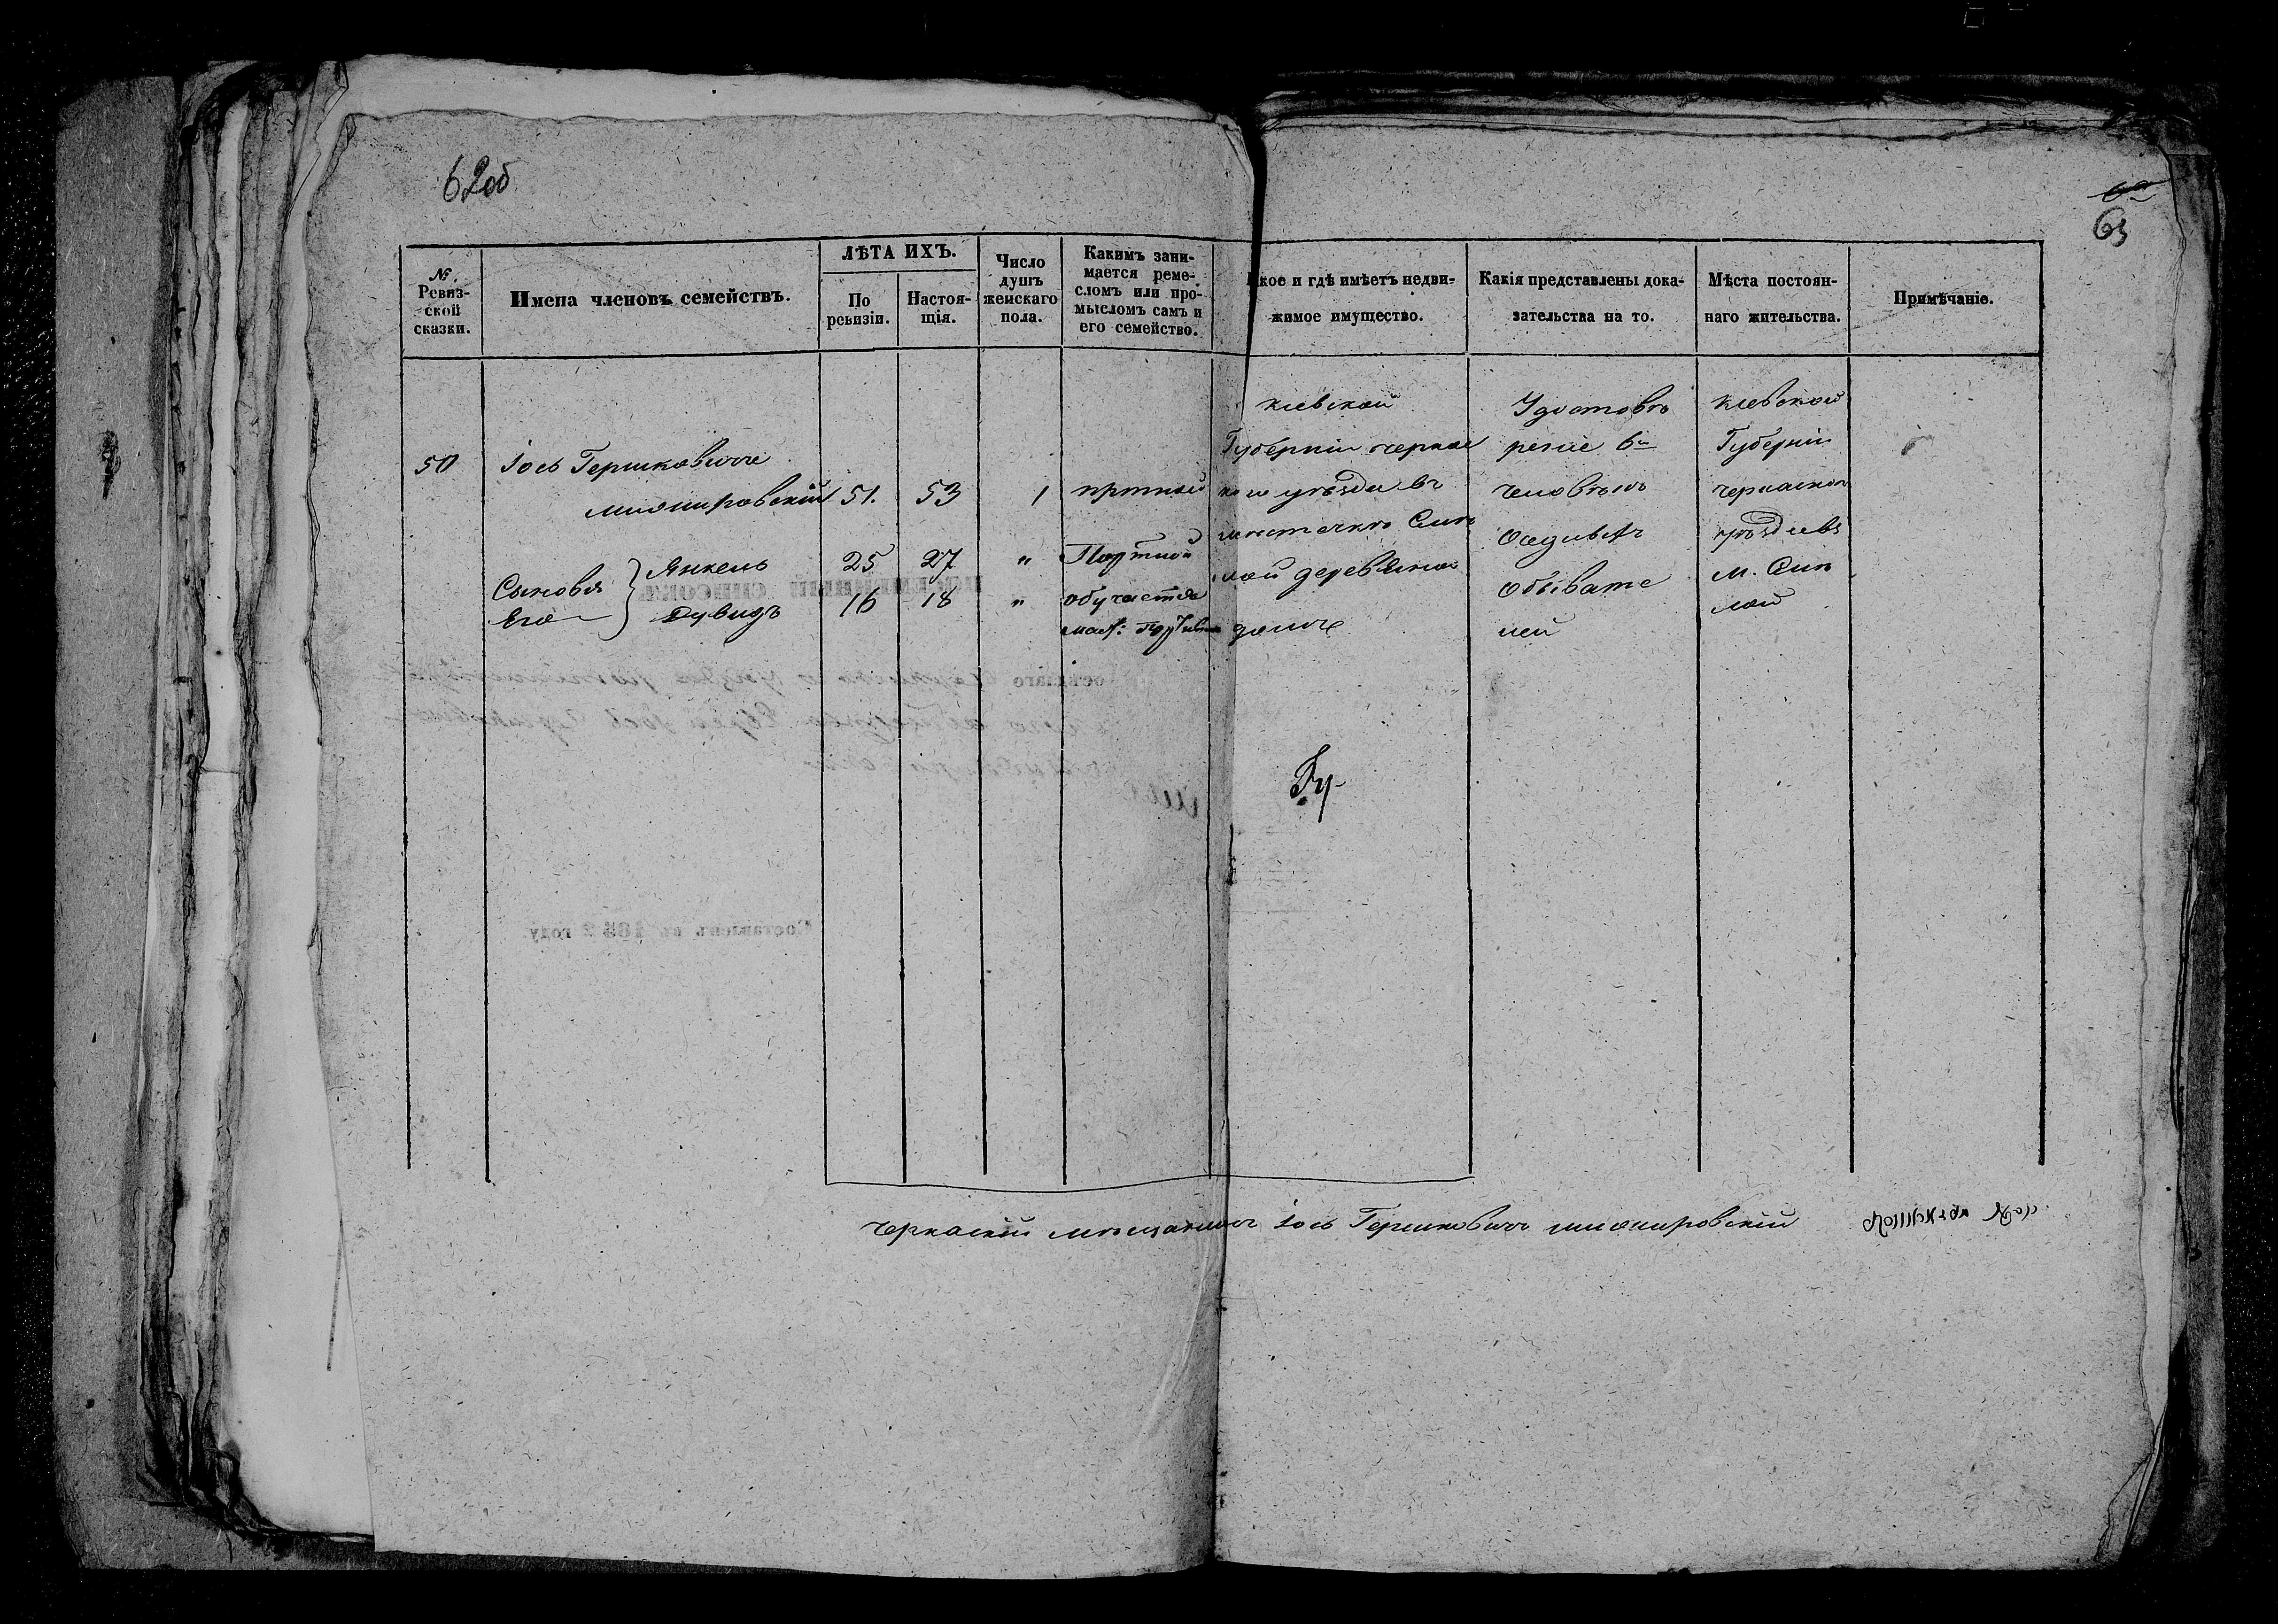 62об
63
№ Ревизской сказки.
Имена членовъ семействъ.
ЛѢТА ИХЪ.
По ревизіи.
Настоящія.
Число душъ женскаго пола.
Какимъ занимается ремесломъ или промысломъ самъ и его семейство.
кое и гдѣ имѣетъ недвижимое имущество.
Какія представлены доказательства на то.
Мѣста постояннаго жительства.
Примѣчаніе.
50
Іось Гершковичъ
51. 53 1
Сыновья Его
Янкель 25 27 " Портной
Дувидъ 16 18 " обучается
маст: Порт
кіевской
Губерніи черкас
каго уѣзда въ
мѣстечкѣ Смѣ
лой деревянной
домъ
Удостовѣ
реніе 6и
человѣкъ
осѣдлыхъ
обывате
лей
Кіевской
Губерніи
черкаскомъ
уѣздѣ въ
м. Смѣ
лой
Составленъ въ 1852 году.
Черкаскій мѣщанинъ Іось Гершковичъ